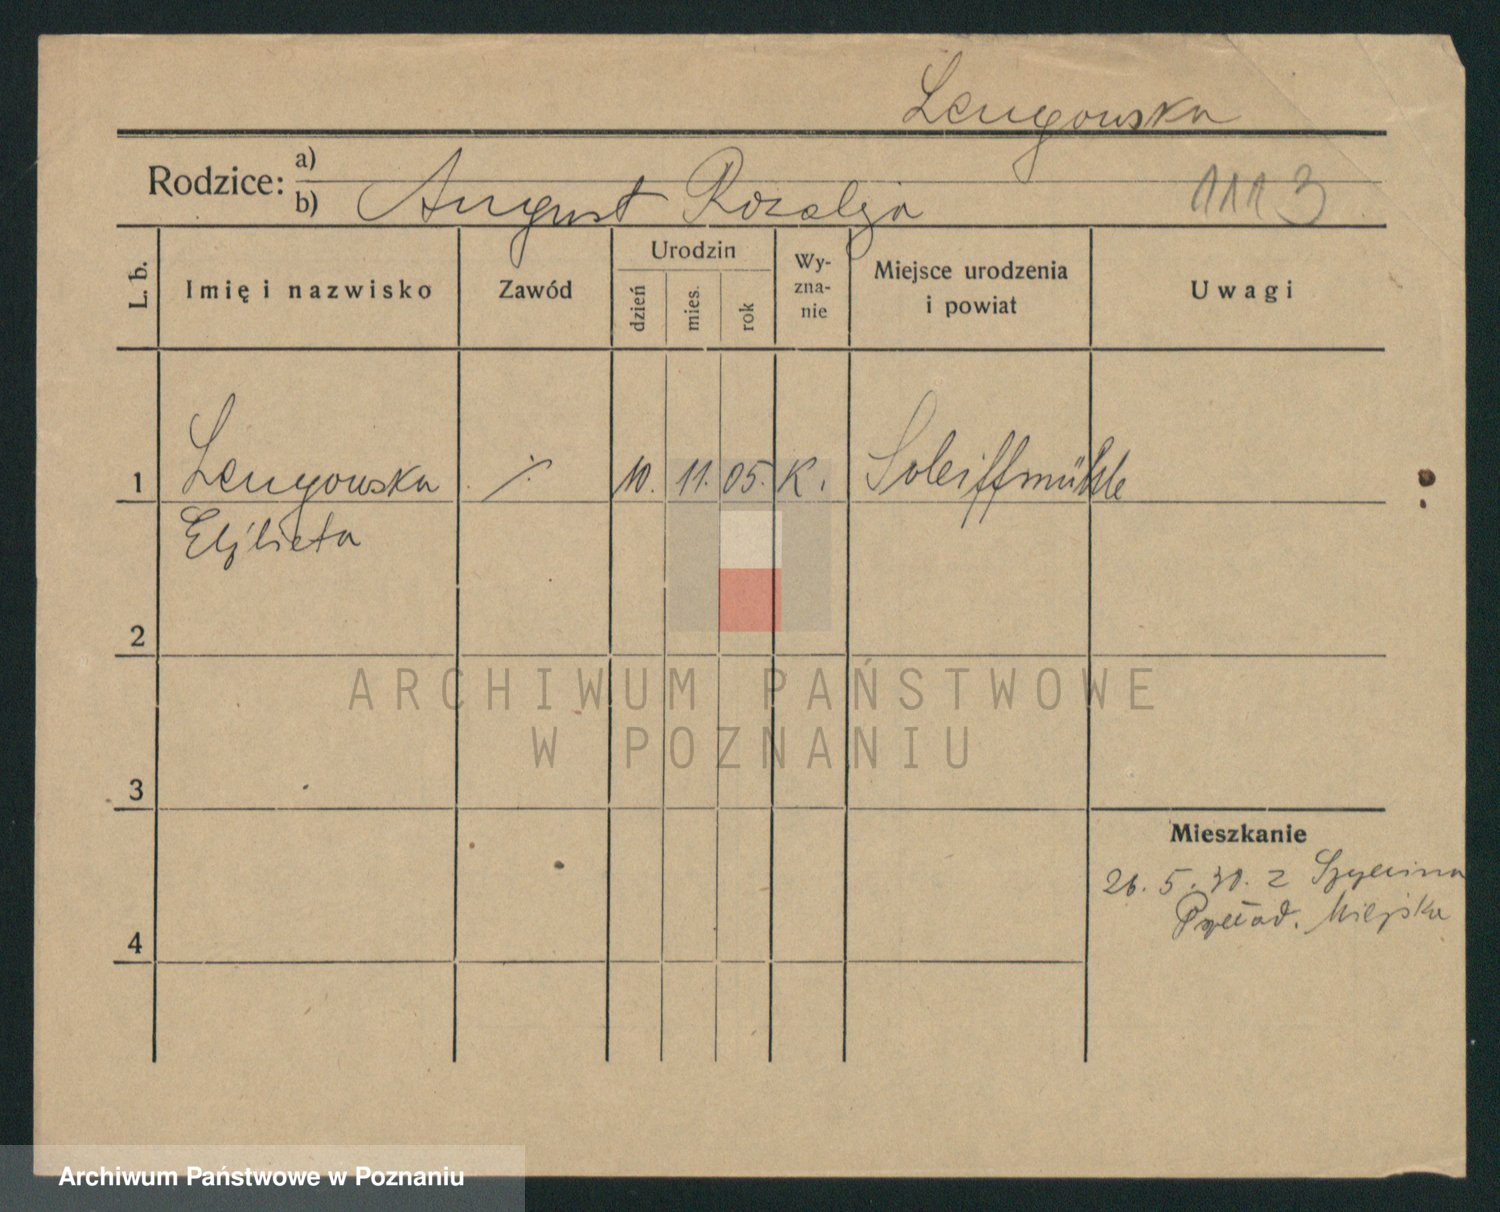 Lengowska
Rodzice: a)
b) August Rozalja
1113
L. b.
Imię i nazwisko
Zawód
Urodzin
dzień
mies.
rok
Wy-
zna-
nie
Miejsce urodzenia
i powiat
Uwagi
1 Lengowska ·/. 10. 11. 05. K. Schleiffmühle
Elżbieta
2
3
Mieszkanie
26. 5. 30. z
Miejska
4
ARCHIWUM PAŃSTWOWE
W POZNANIU
Archiwum Państwowe w Poznaniu